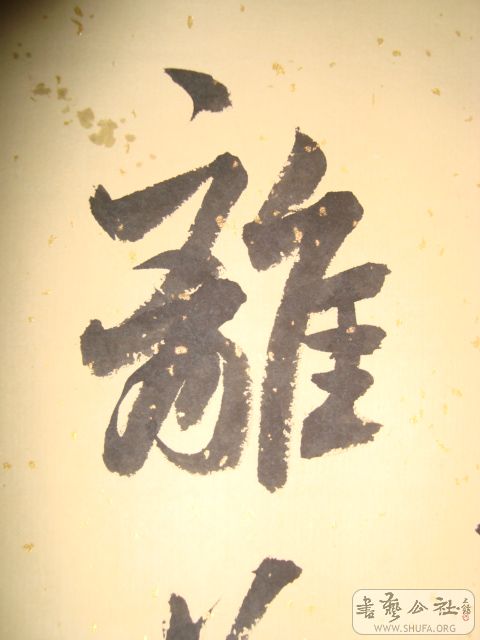 離
書藝公社
WWW.SHUFA.ORG